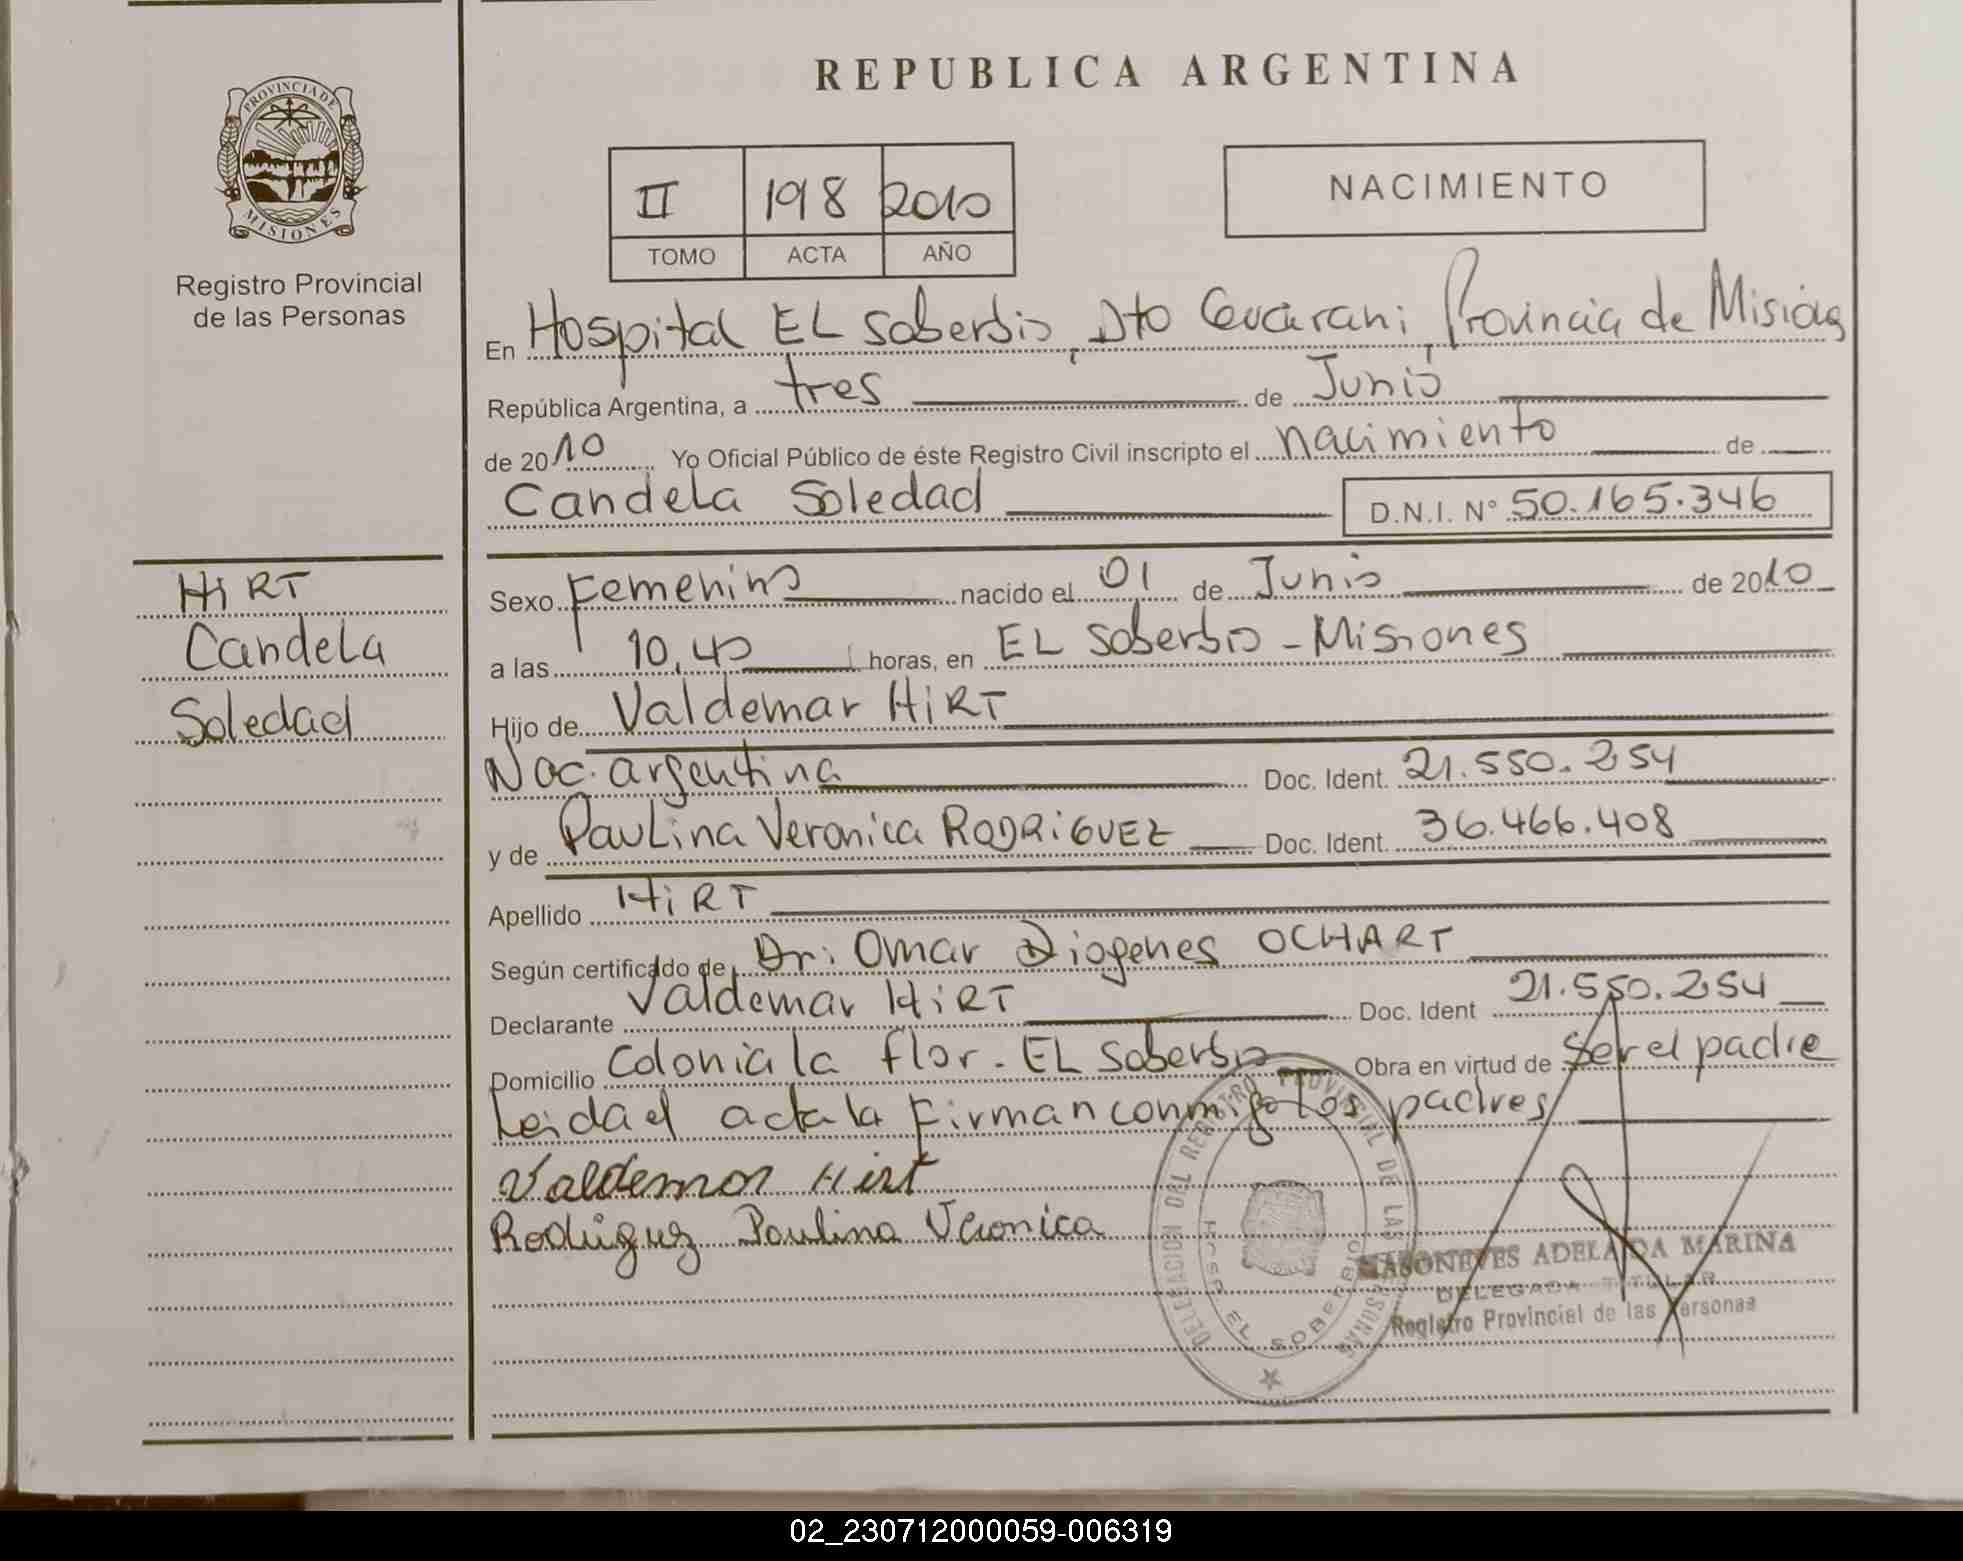 REPUBLICA ARGENTINA
PROVINCIA DE
MISIONES
Registro Provincial
de las Personas
II 198 2010
TOMO ACTA AÑO
NACIMIENTO
En Hospital EL Soberbio, Dto Guarani, Provincia de Misiones
República Argentina, a tres de Junio
de 2010 Yo Oficial Público de éste Registro Civil inscripto el nacimiento de
Candela Soledad D.N.I. N° 50.165.346
HiRT
Candela
Soledad
Sexo Femenino nacido el 01 de Junio de 2010
a las 10,40 horas, en EL Soberbio - Misiones
Hijo de Valdemar HiRT
Nac. argentina Doc. Ident. 21.550.254
y de Paulina Veronica RODRiGUEZ Doc. Ident. 36.466.408
Apellido HiRT
Según certificado de Dr: Omar Diogenes OCHART
Declarante Valdemar HiRT Doc. Ident 21.550.254
Domicilio Colonia la flor - EL Soberbio Obra en virtud de ser el padre
Leida el acta la Firman conmigo los padres
Valdemar Hirt
Rodriguez Paulina Veronica
DELEGACION DEL REGISTRO PROVINCIAL DE LAS PERSONAS
HOSP. EL SOBERBIO
ADELAIDA MARINA
DELEGADA TITULAR
Registro Provincial de las Personas
02_230712000059-006319